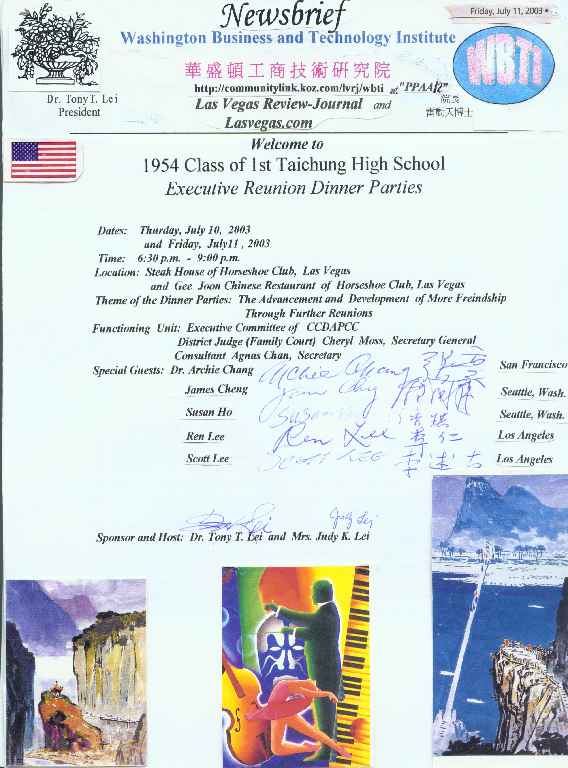 Newsbrief
Friday, July 11, 2003 •
Washington Business and Technology Institute
WBTI
華盛頓工商技術研究院
http://communitylink.koz.com/lvrj/wbti at "PPAAR"
院長
雷動天博士
Dr. Tony T. Lei
President
Las Vegas Review-Journal and
Lasvegas.com
Welcome to
1954 Class of 1st Taichung High School
Executive Reunion Dinner Parties
Dates: Thurday, July 10, 2003
and Friday, July11, 2003
Time: 6:30 p.m. - 9:00 p.m.
Location: Steak House of Horseshoe Club, Las Vegas
and Gee Joon Chinese Restaurant of Horseshoe Club, Las Vegas
Theme of the Dinner Parties: The Advancement and Development of More Freindship
Through Further Reunions
Functioning Unit: Executive Committee of CCDAPCC
District Judge (Family Court) Cheryl Moss, Secretary General
Consultant Agnas Chan, Secretary
Special Guests: Dr. Archie Chang Archie Chang San Francisco
James Cheng Seattle, Wash.
Susan Ho Seattle, Wash.
Ren Lee Ren Lee 李仁 Los Angeles
Scott Lee SCOTT LEE 李 Los Angeles
Judy Lei
Sponsor and Host: Dr. Tony T. Lei and Mrs. Judy K. Lei